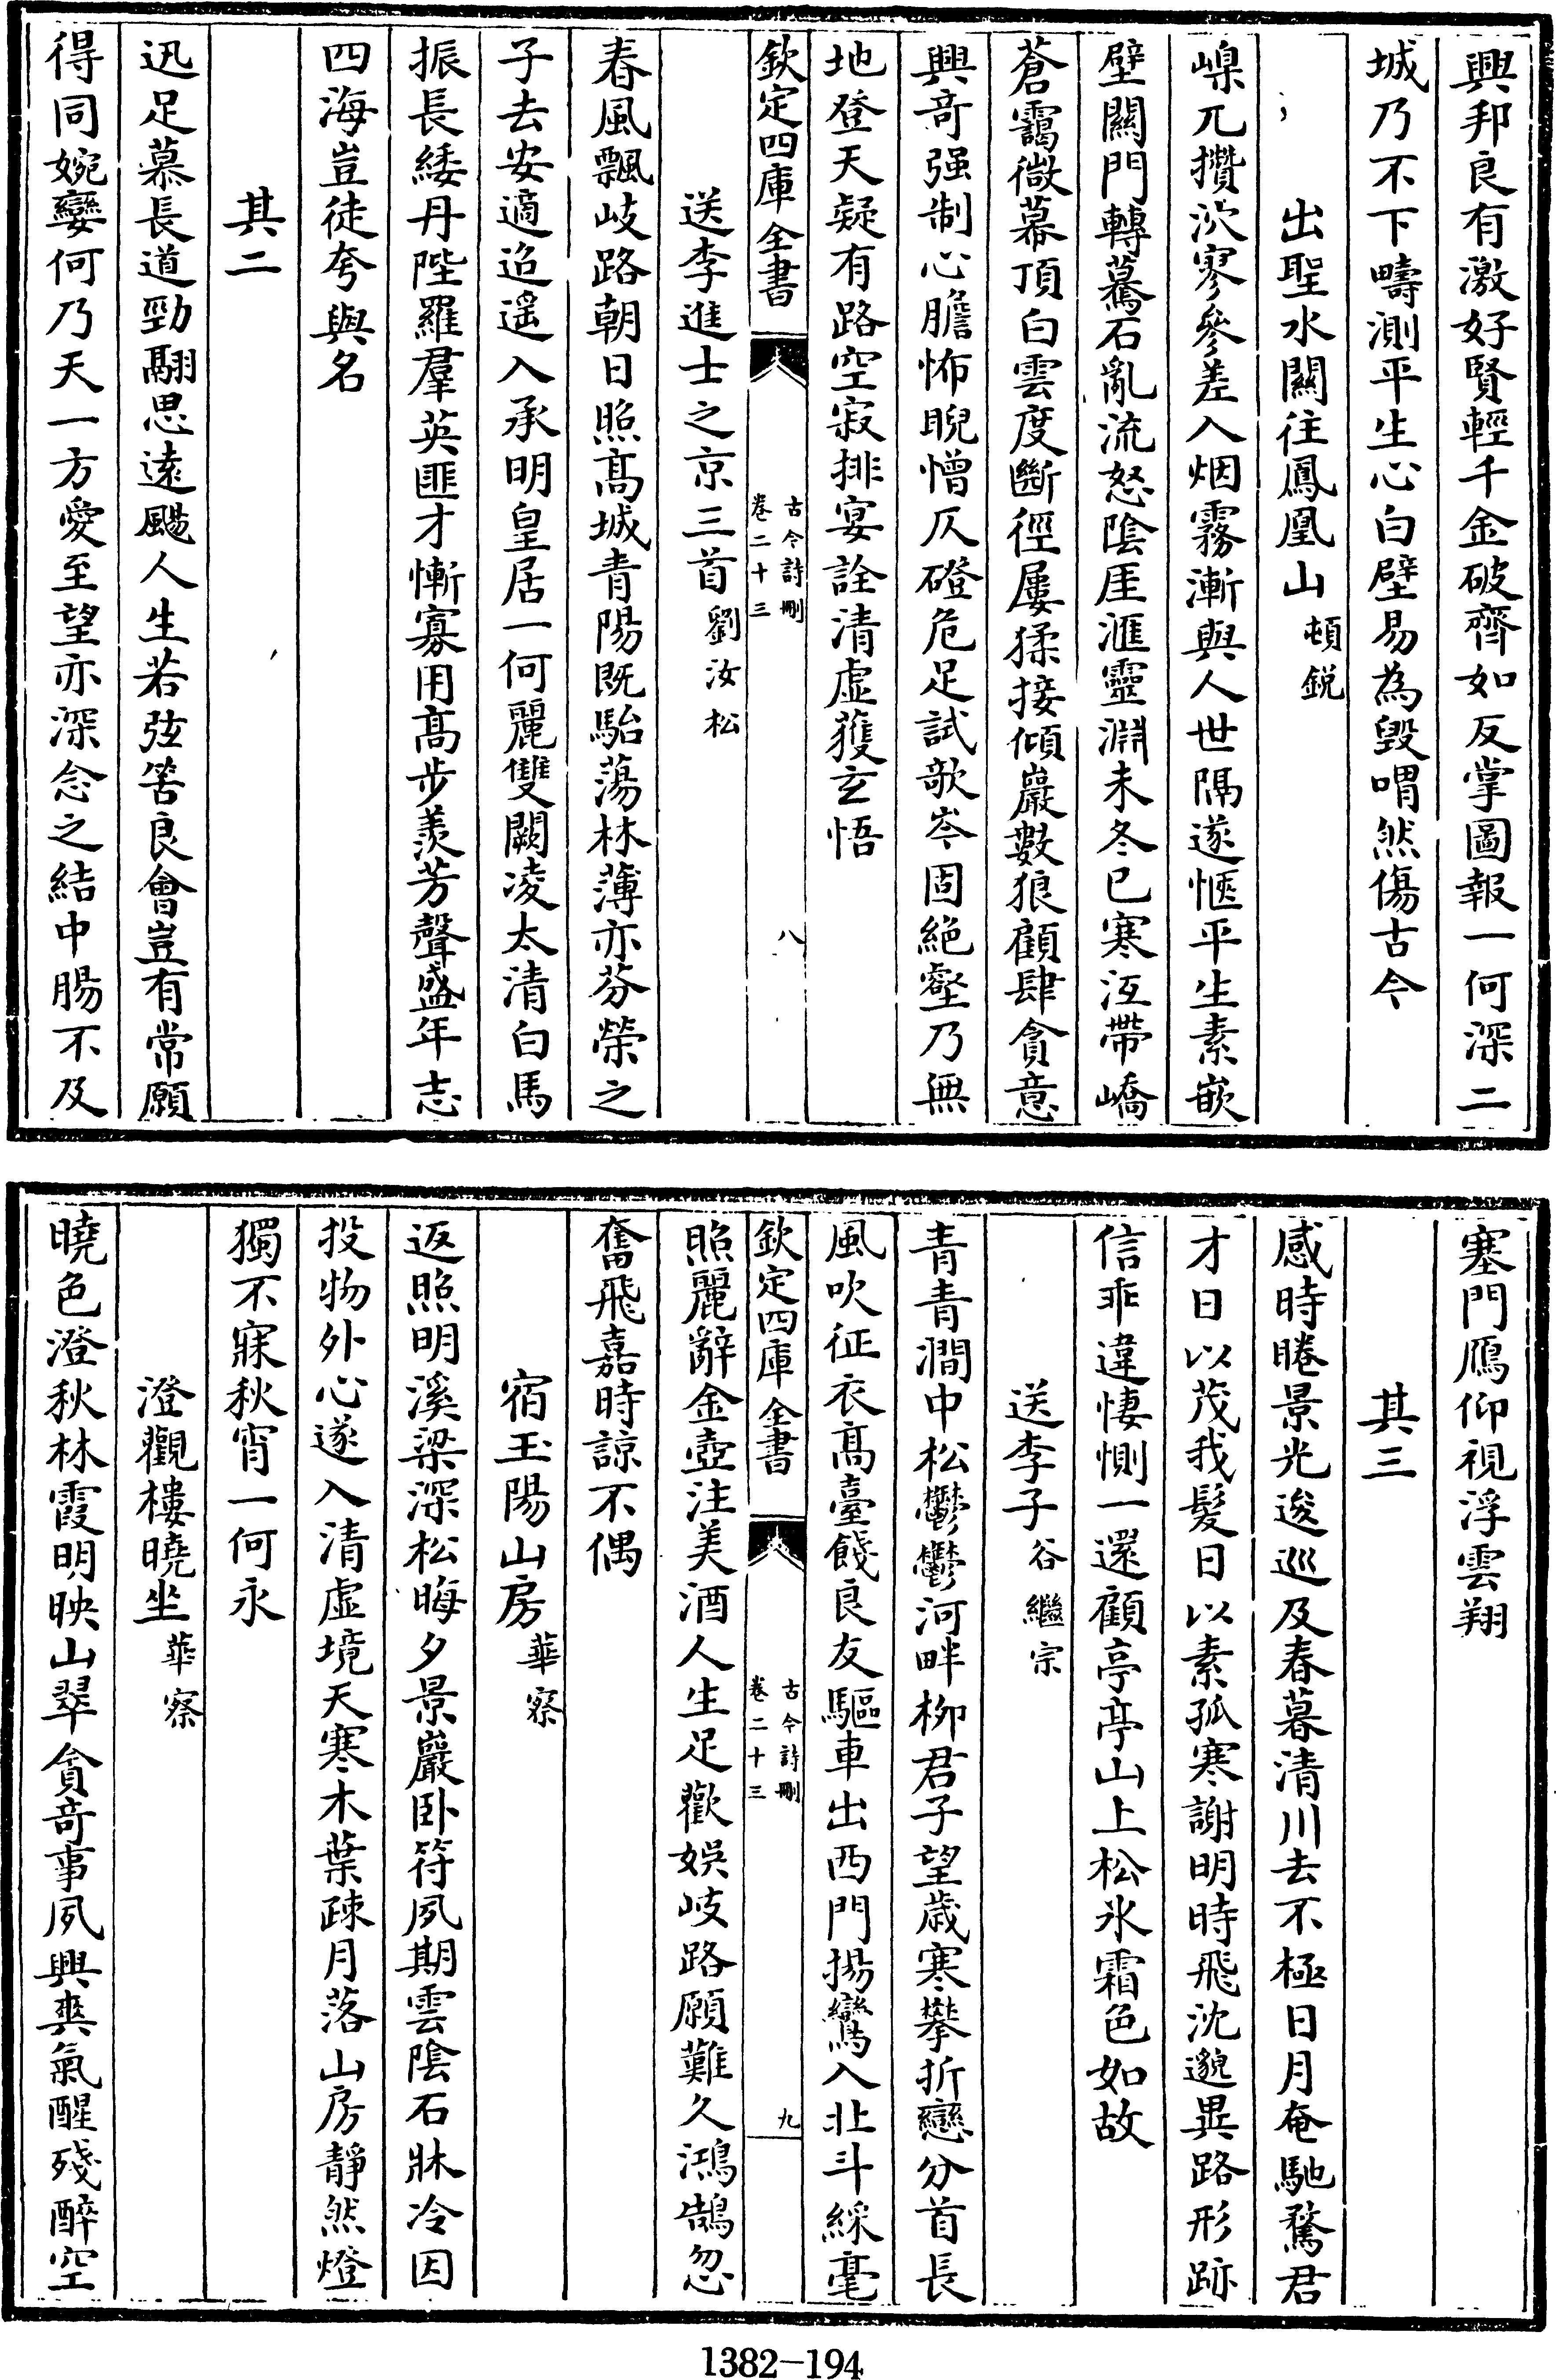 興邦良有激好賢輕千金破齊如反掌圖報一何深二
城乃不下疇測平生心白璧易為毀喟然傷古今
出聖水關往鳳凰山 頓鋭
嵲兀攢泬寥參差入烟霧漸與人世隔遂愜平生素嵌
壁闗門轉驀石亂流怒陰厓滙靈淵未冬已寒沍帶嶠
蒼靄微幕頂白雲度斷徑屢猱接傾巖數狼顧肆貪意
興竒强制心膽怖睨憎仄磴危足試欹岑固絶壑乃無
地登天疑有路空寂排宴詮清虚獲玄悟
欽定四庫全書
古今詩刪
卷二十三
八
送李進士之京三首 劉汝松
春風飄岐路朝日照髙城青陽既駘蕩林薄亦芬榮之
子去安適迢遥入承明皇居一何麗雙闕凌太清白馬
振長緌丹陛羅羣英匪才慚寡用髙步羨芳聲盛年志
四海豈徒夸與名
其二
迅足慕長道勁翮思遠颺人生若弦筈良會豈有常願
得同婉孌何乃天一方愛至望亦深念之結中腸不及
塞門鴈仰視浮雲翔
其三
感時睠景光逡巡及春暮清川去不極日月奄馳騖君
才日以茂我髮日以素孤寒謝明時飛沈邈異路形跡
信乖違悽惻一還顧亭亭山上松氷霜色如故
送李子 谷繼宗
青青澗中松鬱鬱河畔柳君子望歳寒攀折戀分首長
風吹征衣髙臺餞良友驅車出西門揚鸞入北斗綵毫
欽定四庫全書
古今詩刪
卷二十三
九
照麗辭金壺注美酒人生足歡娱岐路願難久鴻鵠忽
奮飛嘉時諒不偶
宿玉陽山房 華察
返照明溪梁深松晦夕景巖卧符夙期雲陰石牀冷因
投物外心遂入清虚境天寒木葉疎月落山房靜然燈
獨不寐秋宵一何永
澄觀樓曉坐 華察
曉色澄秋林霞明映山翠貪竒事夙興爽氣醒殘醉空
1382-194